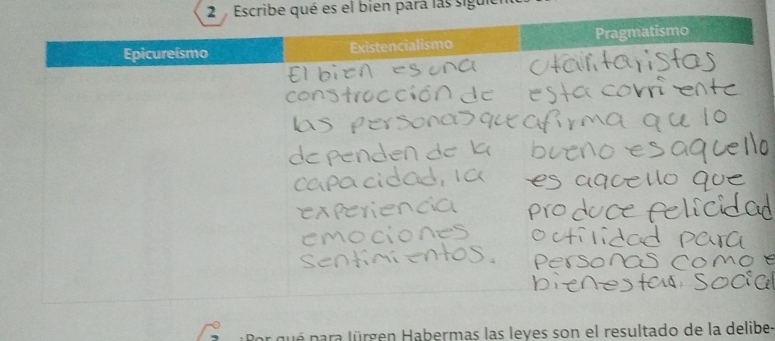 2 Escribe qué es el bien para las siguient
Epicureísmo
Existencialismo
Pragmatismo
El bien es una
construcción de
las personas que
dependen de la
capacidad, la
experiencia
emociones
sentimientos.
utaritaristas
esta corriente
afirma que lo
bueno es aquello
es aquello que
produce felicidad
o utilidad para
personas como e
bienestar. Social
¿Por qué para Jürgen Habermas las leyes son el resultado de la delibe-